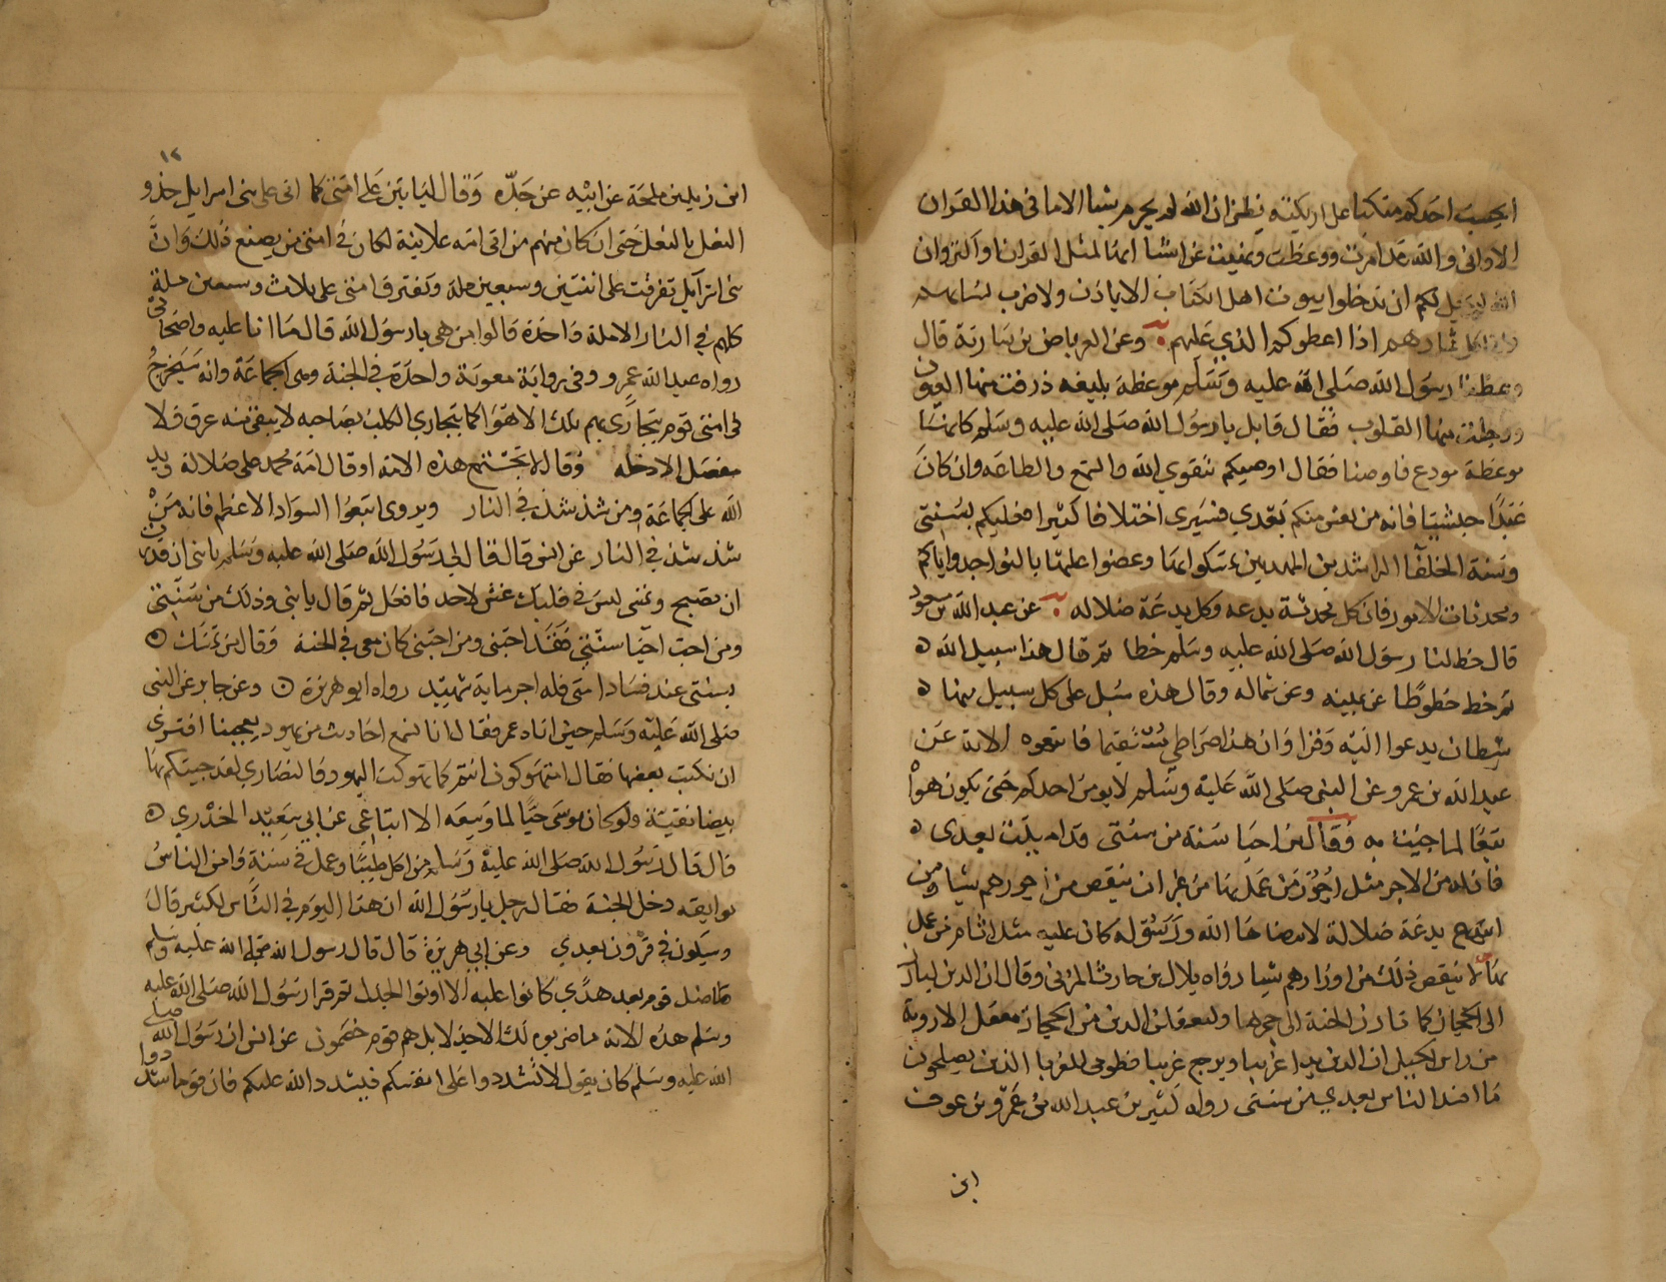 ايحسب احدكم متكيا على اريكته يظن ان الله لم يحرم شيا الا ما في هذا القران
الا واني والله قد امرت ووعظت ونهيت عن اشيا انها لمثل القران واكثر وان
الله لم يحل لكم ان تدخلوا بيوت اهل الكتاب الا باذن ولا ضرب نسايهم
ولا اكل ثمارهم اذا اعطوكم الذي عليهم وعن العرباض بن سارية قال
وعظنا رسول الله صلى الله عليه وسلم موعظة بليغه ذرفت منها العيون
ووجلت منها القلوب فقال قايل يا رسول الله صلى الله عليه وسلم كانها
موعظة مودع فاوصنا فقال اوصيكم بتقوي الله والسمع والطاعه وان كان
عبدا حبشيا فانه من يعش منكم بعدي فسيرى اختلافا كثيرا فعليكم بسنتي
وسنة الخلفا الراشدين المهديين تمسكوا بها وعضوا عليها بالنواجد واياكم
ومحدثات الامور فان كل محدثة بدعه وكل بدعة ضلاله عن عبد الله بن مسعود
قال خط لنا رسول الله صلى الله عليه وسلم خطا ثم قال هذا سبيل الله ه
ثم خط خطوطا عن يمينه وعن شماله وقال هذه سبل على كل سبيل منها ه
شيطان يدعوا اليه وقرا وان هذا صراطي مستقيما فاتبعوه الاية عن
عبد الله بن عمرو عن النبي صلى الله عليه وسلم لا يومن احدكم حتى يكون هواه
تبعا لما جيت به وقال من احيا سنة من سنتي قد اميتت بعدى ه
فان له من الاجر مثل اجور من عمل بها من غير ان ينقص من اجورهم شيا ومن
ابتدع بدعة ضلالة لا يرضاها الله ورسوله كان عليه مثل اثام من عمل
بها لا ينقص ذلك من اوزارهم شيا رواه بلال بن حارث المزني وقال ان الدين ليارز
الى الحجاز كما تارز الحية الى جحرها وليعقلن الدين من الحجاز معقل الاروية
من راس الجبل ان الدين بدا غريبا ويرجع غريبا فطوبى للغربا الذين يصلحون
ما افسد الناس بعدي من سنتي رواه كثير بن عبد الله بن عمرو بن عوف
ابن
١٢
ابن زيد بن ملحة عن ابيه عن جده وقال لياتين على امتي كما اتى على بني اسرايل حذو
النعل بالنعل حتى ان كان منهم من اتى امه علانية لكان في امتي من يصنع ذلك وان
بني اسرآيل تفرقت على اثنتين وسبعين ملة وتفترق امتي على ثلاث وسبعين ملة
كلهم في النار الا ملة واحدة قالوا من هي يا رسول الله قال ما انا عليه واصحابي
رواه عبد الله عمرو وفي رواية معوية واحدة في الجنة وهي الجماعة وانه سيخرج
في امتي قوم يتجارى بهم تلك الاهوا كما يتجاري الكلب بصاحبه لا يبقى منه عرق ولا
مفصل الا دخله وقال لا تجتمع هذه الامة او قال امة محمد على ضلالة ويد
الله على الجماعة ومن شذ شذ في النار ويروى اتبعوا السواد الاعظم فانه من
شذ شذ في النار عن انس قال قال لي رسول الله صلى الله عليه وسلم يا بني ان قدرت
ان تصبح وتمسي ليس في قلبك غش لاحد فافعل ثم قال يا بني وذلك من سنتي
ومن احب احيا سنتي فقد احبني ومن احبني كان معي في الجنة وقال من تمسك ه
بسنتي عند فساد امتي فله اجر ماية شهيد رواه ابو هريرة ه وعن جابر عن النبي
صلى الله عليه وسلم حين اتاه عمر فقال انا نسمع احاديث من يهود يعجبنا افترى
ان نكتب بعضها فقال امتهوكون انتم كما تهوكت اليهود والنصاري لقد جيتكم بها
بيضا نقية ولو كان موسى حيا لما وسعه الا اتباعي عن ابي سعيد الخدري ه
قال قال رسول الله صلى الله عليه وسلم من اكل طيبا وعمل في سنة وامن الناس
بوايقه دخل الجنة فقال رجل يا رسول الله ان هذا اليوم في الناس لكثير قال
وسيكون في قرون بعدي وعن ابي هريرة قال قال رسول الله صلى الله عليه وسلم
ما ضل قوم بعد هدى كانوا عليه الا اوتوا الجدل ثم قرا رسول الله صلى الله عليه
وسلم هذه الاية ما ضربوه لك الا جدلا بل هم قوم خصمون عن انس ان رسول الله صلى
الله عليه وسلم كان يقول لا تشددوا على انفسكم فيشدد الله عليكم فان قوما شددوا